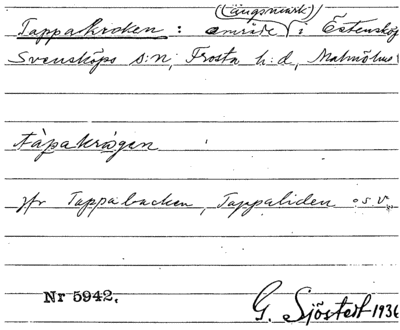 (ängsmark)
Tappakroken : område : Östensköp
Svensköps s:n, Frosta h:d, Malmöhus
tåpakrågen
jfr Tappabacken, Tappaliden o.s.v.
Nr 5942.
G. Sjöstedt 1936